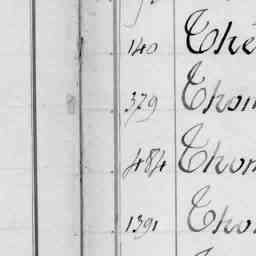 140 The
379 Thom
484 Thom
1391 Tho